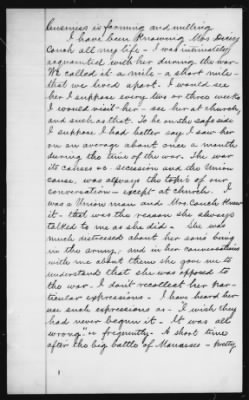 business is farming and milling
I have been knowing Mrs Deisy
Couch all my life - I was intimately
acquainted with her during the war.
We called it a mile - a short mile -
that we lived apart. I would see
her I suppose every two or three weeks
I would visit her - see her at church,
and such as that. To be on the safe side
I suppose I had better say I saw her
on an average about once a month
during the time of the war. The war
its causes &c. secession and the Union
cause, was always the topic of our
conversation - except at church. I
was a Union man and Mrs Couch knew
it - that was the reason she always
talked to me as she did - She was
much distressed about her sons being
in the army, and in her conversations
with me about them she gave me to
understand that she was opposed to
the war. I don't recollect her par-
ticular expressions - I have heard her
use such expressions as - "I wish they
had never begun it - It was all
wrong" &c frequently. A short time
after the big battle of Manassas - pretty